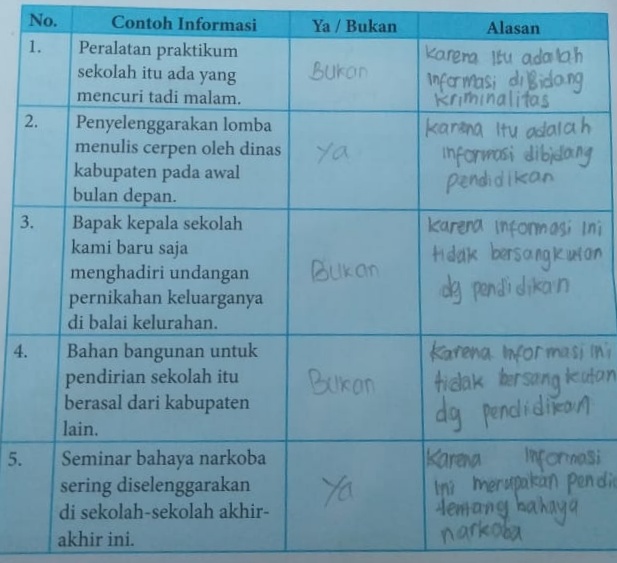 No. Contoh Informasi Ya / Bukan Alasan
1. Peralatan praktikum
sekolah itu ada yang
mencuri tadi malam.
Bukan
karena itu adalah
informasi dibidang
kriminalitas
2. Penyelenggarakan lomba
menulis cerpen oleh dinas
kabupaten pada awal
bulan depan.
Ya
karena itu adalah
informasi dibidang
pendidikan
3. Bapak kepala sekolah
kami baru saja
menghadiri undangan
pernikahan keluarganya
di balai kelurahan.
Bukan
karena informasi ini
tidak bersangkutan
dg pendidikan
4. Bahan bangunan untuk
pendirian sekolah itu
berasal dari kabupaten
lain.
Bukan
karena informasi ini
tidak bersangkutan
dg pendidikan
5. Seminar bahaya narkoba
sering diselenggarakan
di sekolah-sekolah akhir-
akhir ini.
Ya
karena informasi
ini merupakan pendi
tentang bahaya
narkoba